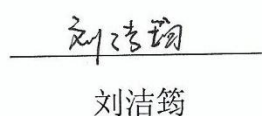 刘洁筠
刘洁筠